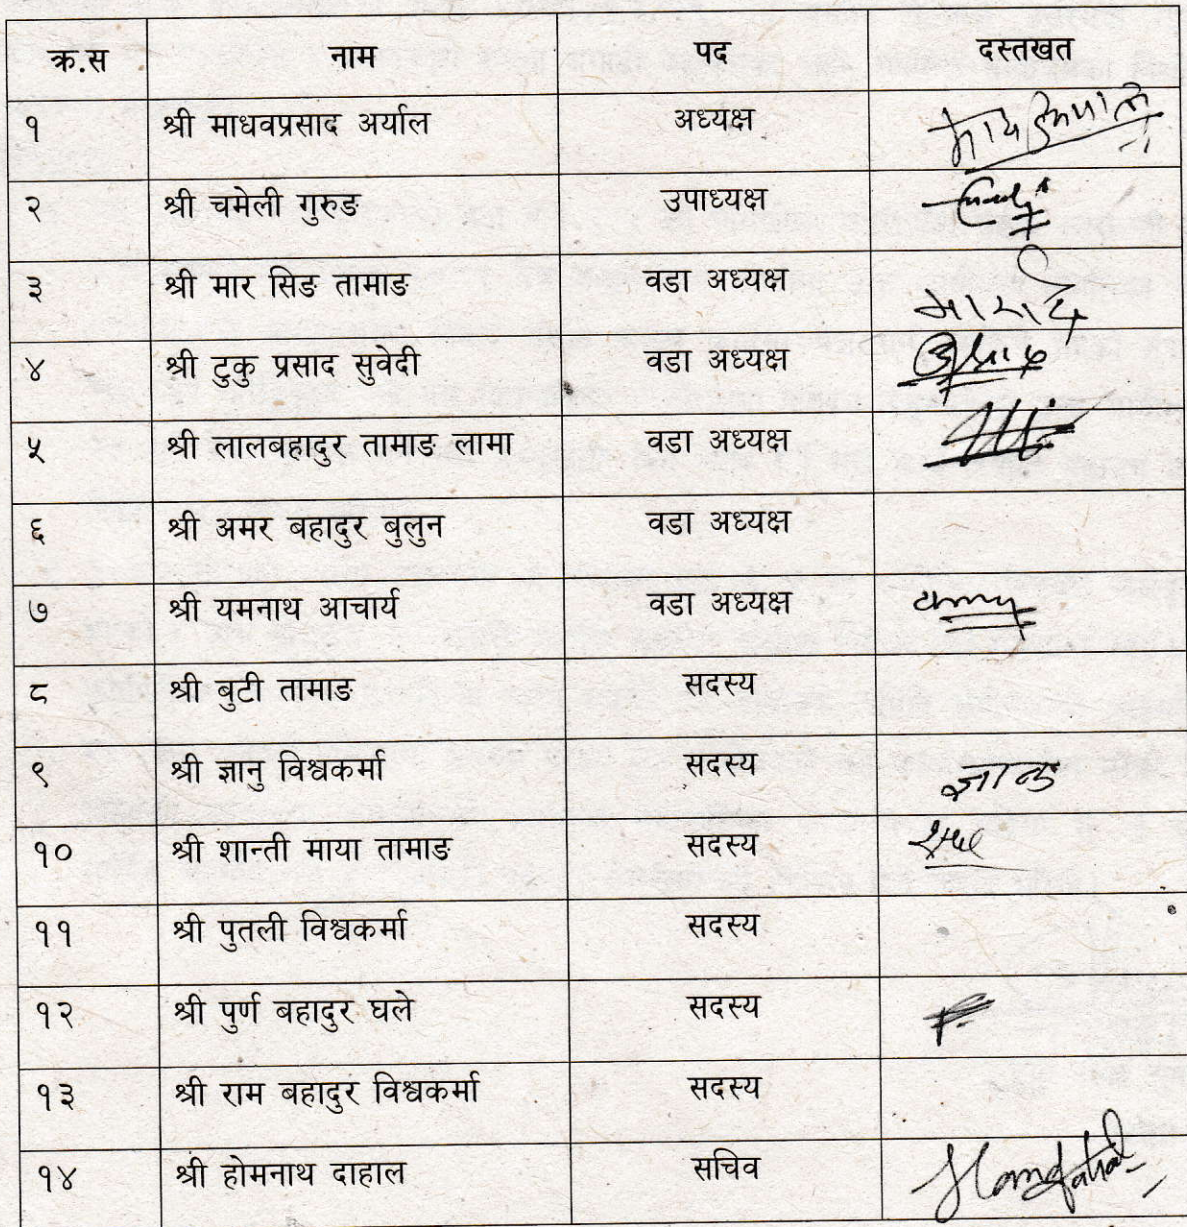 क्र.स नाम पद दस्तखत
१ श्री माधवप्रसाद अर्याल अध्यक्ष
२ श्री चमेली गुरुङ उपाध्यक्ष
३ श्री मार सिङ तामाङ वडा अध्यक्ष
४ श्री टुकु प्रसाद सुवेदी वडा अध्यक्ष
५ श्री लालबहादुर तामाङ लामा वडा अध्यक्ष
६ श्री अमर बहादुर बुलुन वडा अध्यक्ष
७ श्री यमनाथ आचार्य वडा अध्यक्ष
८ श्री बुटी तामाङ सदस्य
९ श्री ज्ञानु विश्वकर्मा सदस्य ज्ञानु
१० श्री शान्ती माया तामाङ सदस्य
११ श्री पुतली विश्वकर्मा सदस्य
१२ श्री पुर्ण बहादुर घले सदस्य
१३ श्री राम बहादुर विश्वकर्मा सदस्य
१४ श्री होमनाथ दाहाल सचिव